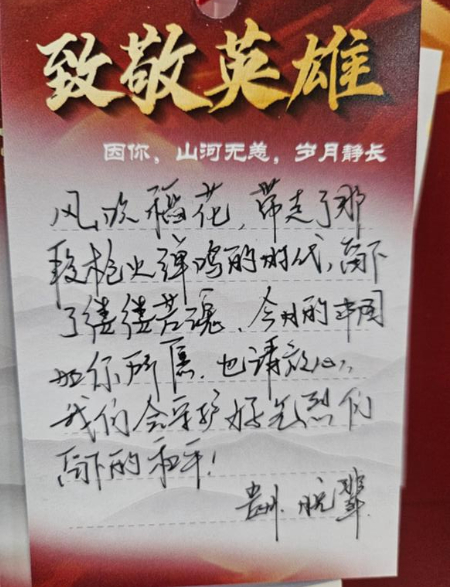 致敬英雄
因你，山河无恙，岁月静长
风吹稻花，带走了那
段枪火弹鸣的时代，留下
了缕缕苦魂、今日的中国
如你所愿。也请放心，
我们会守护好先烈们
留下的和平！
晚辈